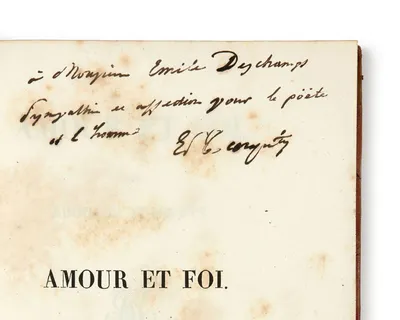 à Monsieur Emile Deschamps
Sympathie et affection pour le poëte
et l'homme
Ed Turquety
AMOUR ET FOI.